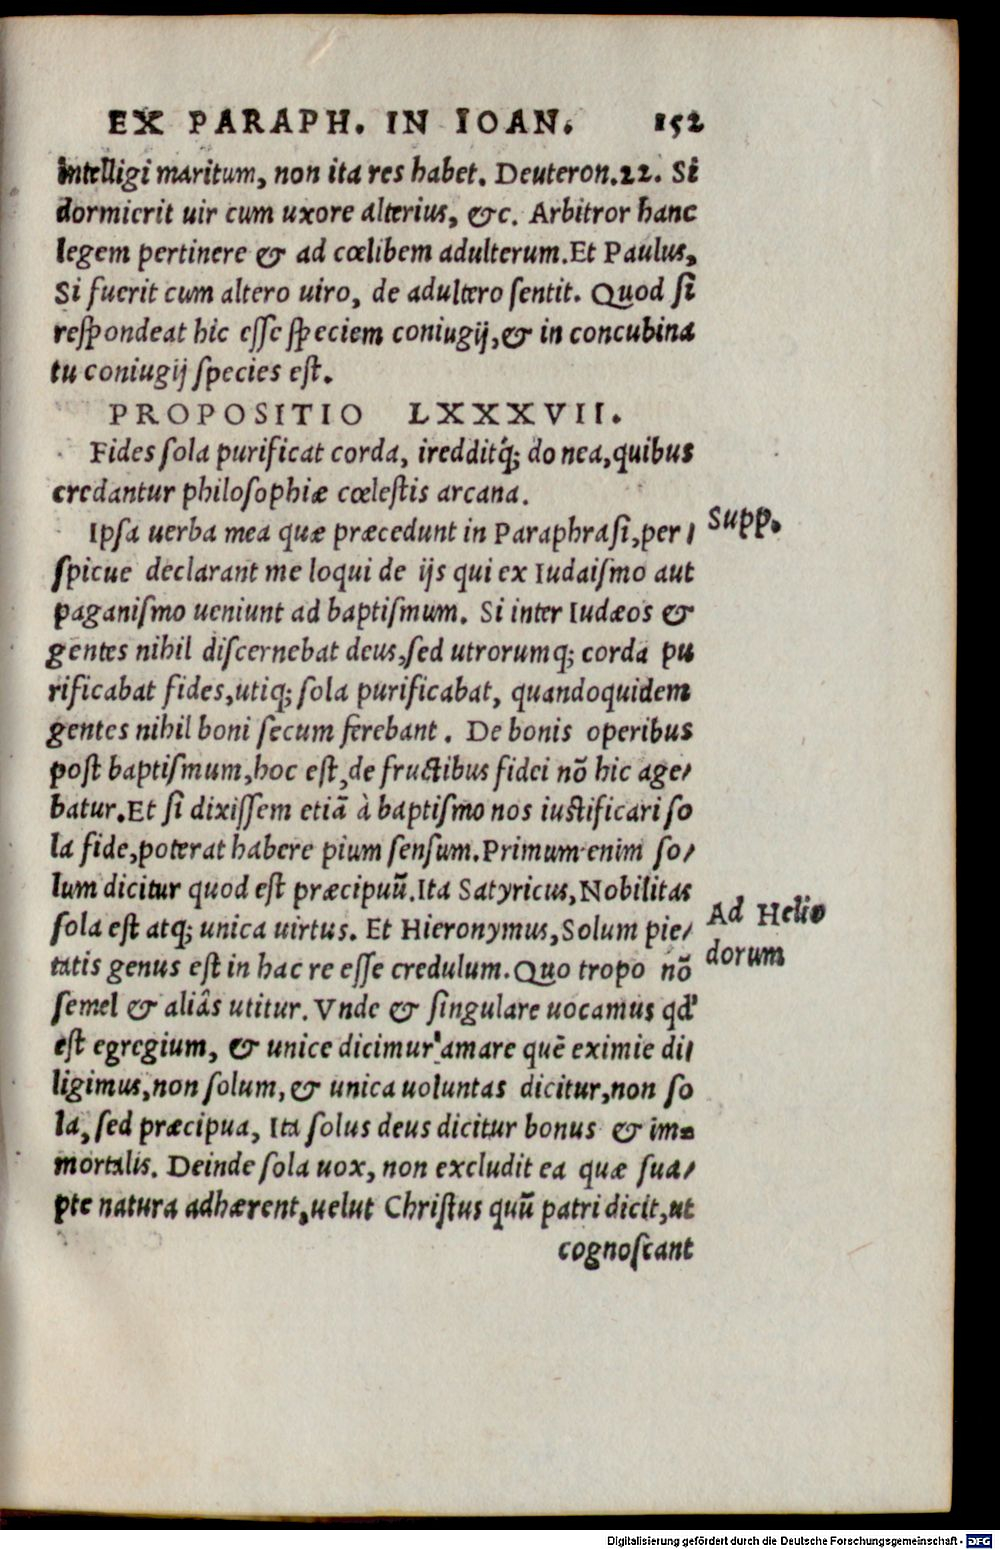 EX PARAPH. IN IOAN. 152
intelligi maritum, non ita res habet. Deuteron.22. Si
dormierit uir cum uxore alterius, &c. Arbitror hanc
legem pertinere & ad cœlibem adulterum.Et Paulus,
Si fuerit cum altero uiro, de adultero ſentit. Quod ſi
reſpondeat hic eſſe ſpeciem coniugij,& in concubina
tu coniugij ſpecies eſt.
PROPOSITIO LXXXVII.
Fides ſola purificat corda, iredditq́; do nea,quibus
credantur philoſophiæ cœleſtis arcana.
Ipſa uerba mea quæ præcedunt in Paraphraſi,per/
Supp.
ſpicue declarant me loqui de ijs qui ex Iudaiſmo aut
paganiſmo ueniunt ad baptiſmum. Si inter Iudæos &
gentes nihil diſcernebat deus,ſed utrorumq; corda pu
rificabat fides,utiq; ſola purificabat, quandoquidem
gentes nihil boni ſecum ferebant. De bonis operibus
poſt baptiſmum,hoc eſt,de fructibus fidei nõ hic age/
batur.Et ſi dixiſſem etiã à baptiſmo nos iuſtificari ſo
la fide,poterat habere pium ſenſum.Primum enim ſo/
lum dicitur quod eſt præcipuũ.Ita Satyricus,Nobilitas
ſola eſt atq; unica uirtus. Et Hieronymus,Solum pie/
Ad Helio
dorum
tatis genus eſt in hac re eſſe credulum.Quo tropo nõ
ſemel & aliâs utitur. Vnde & ſingulare uocamus qd'
eſt egregium, & unice dicimur amare quẽ eximie di/
ligimus,non ſolum,& unica uoluntas dicitur,non ſo
la, ſed præcipua, Ita ſolus deus dicitur bonus & im=
mortalis. Deinde ſola uox, non excludit ea quæ ſua/
pte natura adhærent,uelut Chriſtus quũ patri dicit,ut
cognoſcant
Digitalisierung gefördert durch die Deutsche Forschungsgemeinschaft - DFG